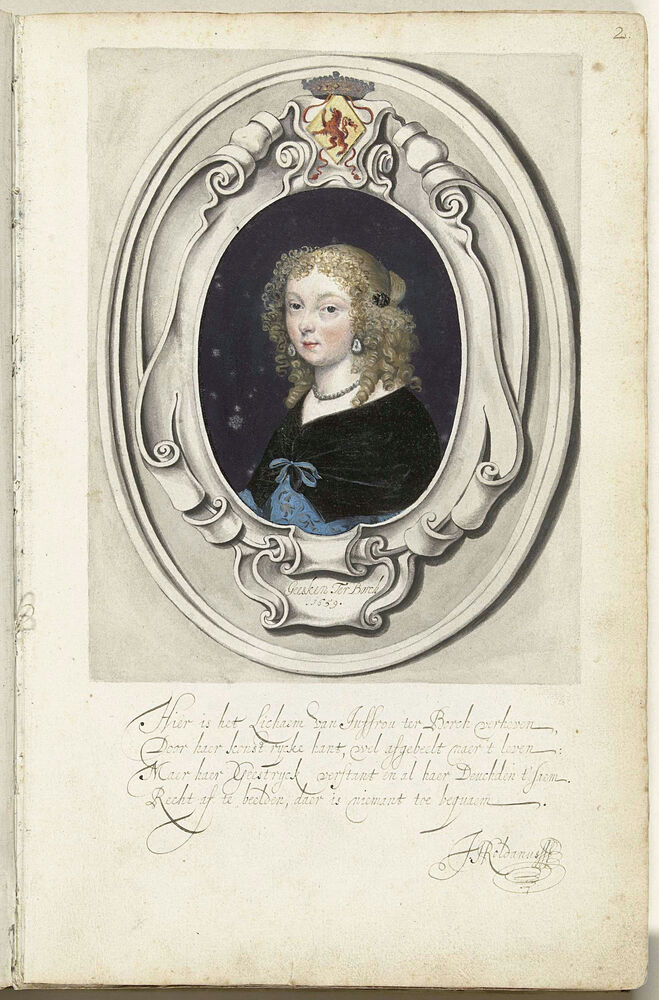 2.
Geesken Ter Borch
1659.
Hier is het Lichaem van Juffrou ter Borch verheven,
Door haer konst rycke hant, wel afgebeelt naer t leven:
Maer haer Geestryck verstant en al haer Deuchden t' saem
Recht af te beelden, daer is niemant toe bequaem.
J Roldanus